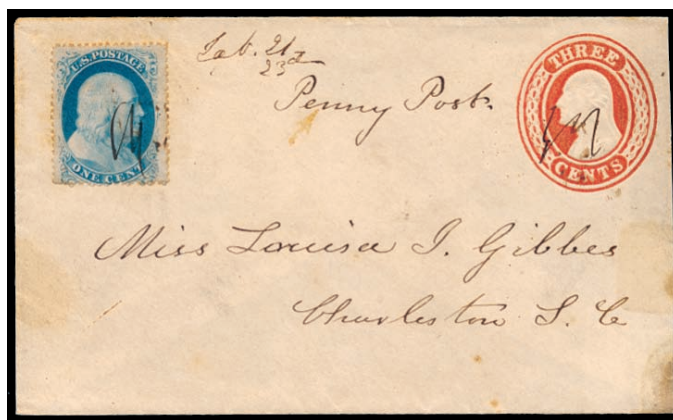 U.S. POSTAGE
ONE CENT
21
23
Penny Post.
THREE
CENTS
Miss Louisa I. Gibbes
Charleston S. C